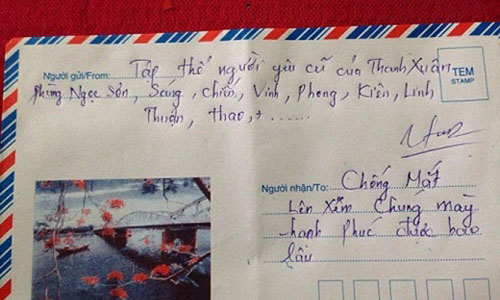 Người gửi/From: Tập thể người yêu cũ của Thanh Xuân
phùng Ngọc Sơn, Sáng, chiến, Vinh, Phong, Kiên, Linh
Thuận, thao, + ......
TEM
STAMP
Người nhận/To: Chống Mắt
Lên Xem Chúng mày
hạnh phúc được bao
lâu